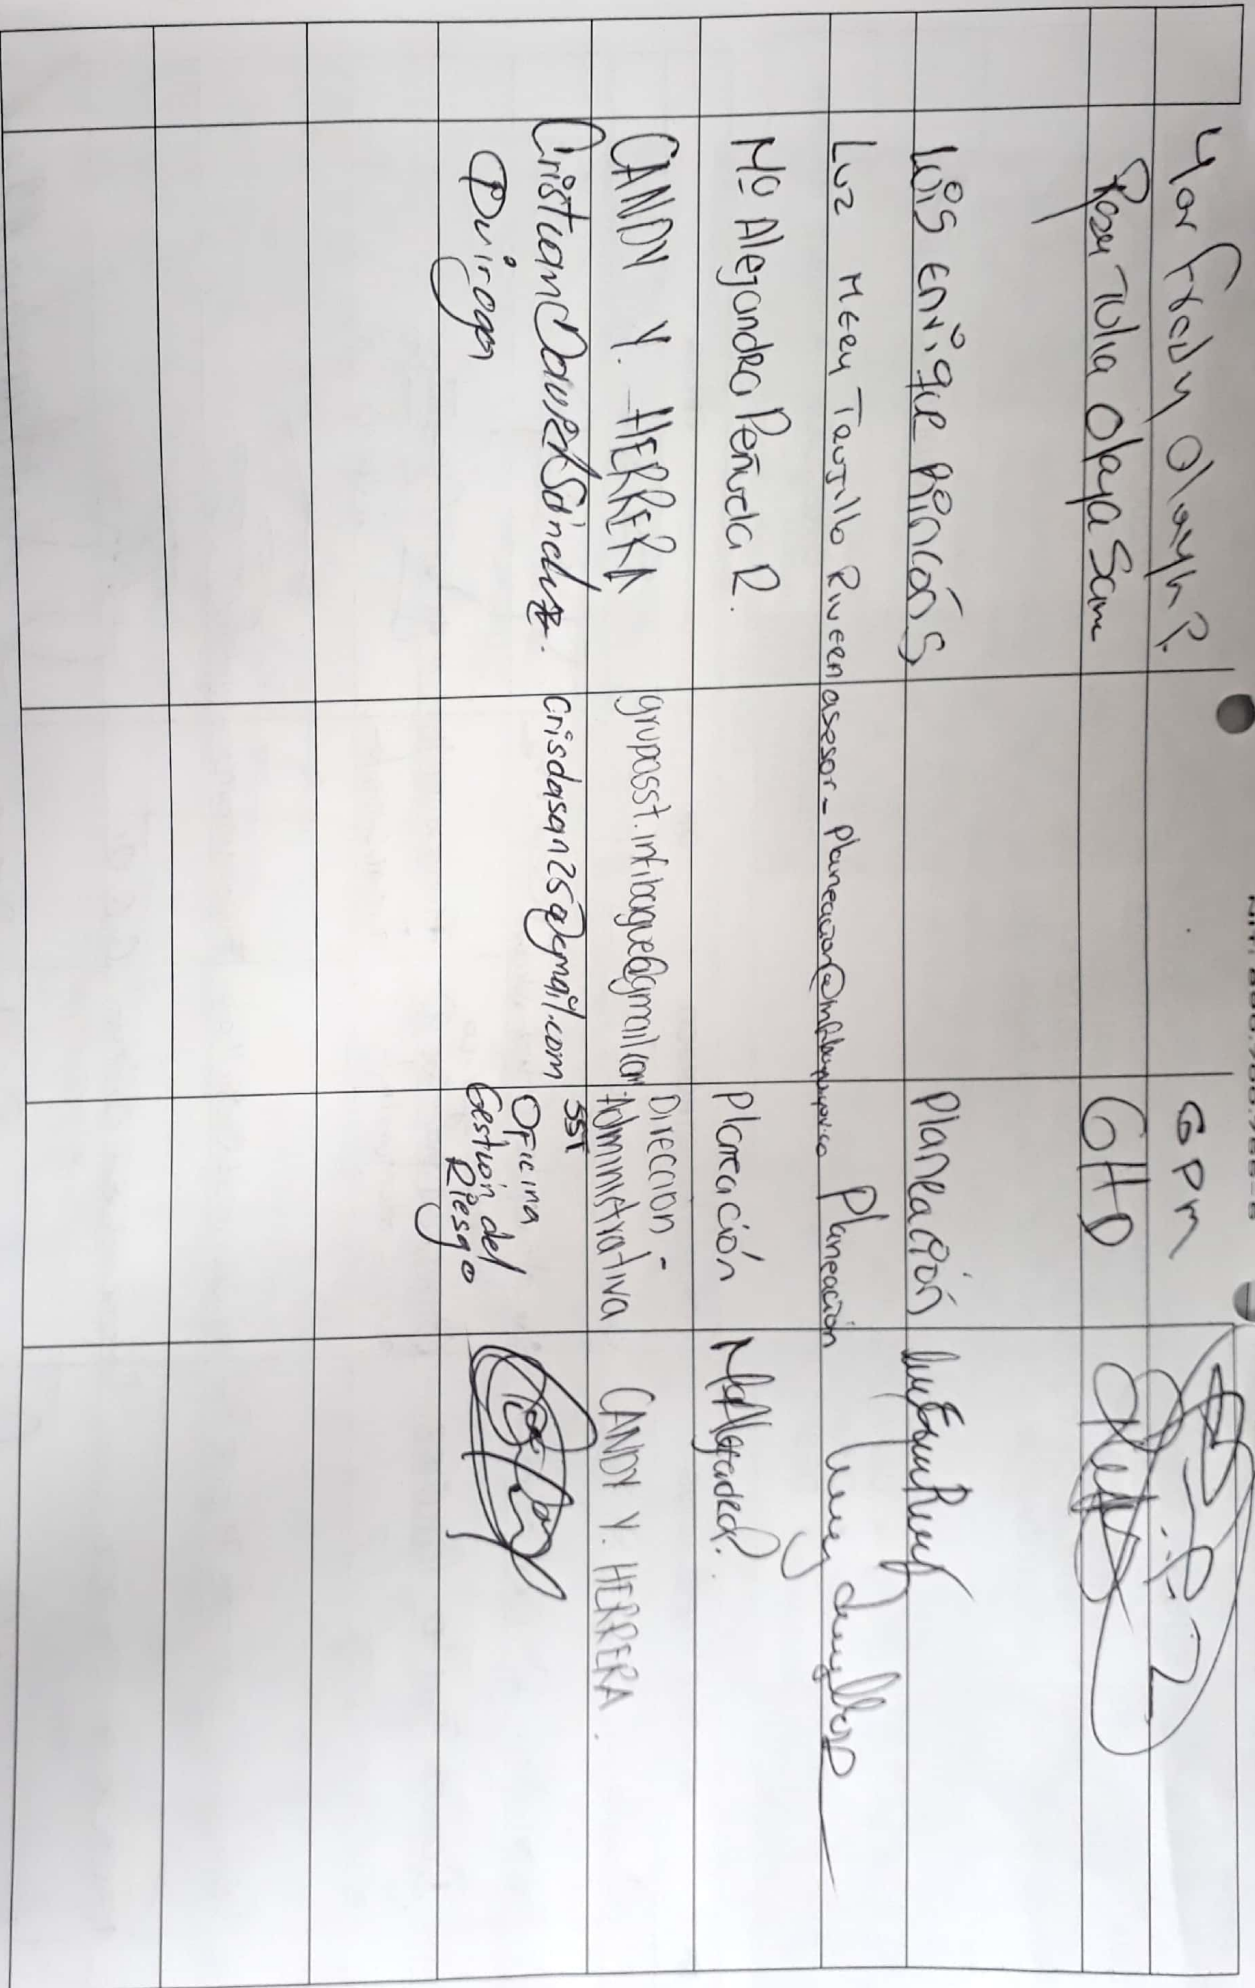 Fredy Olaya P. GPM
Rosa Tulia Olaya GHD
Luis Enrique Rincón S Planeación
Luz Mery Trujillo Rivera asesor-planeacion@ Planeación
Mª Alejandra Peñuela R. Planeación
CANDY Y. HERRERA gruposst.infibague@gmail.com Dirección Administrativa SST CANDY Y. HERRERA.
Cristian David Sánchez. crisdasan25@gmail.com Oficina
Quiroga Gestión del
Riesgo